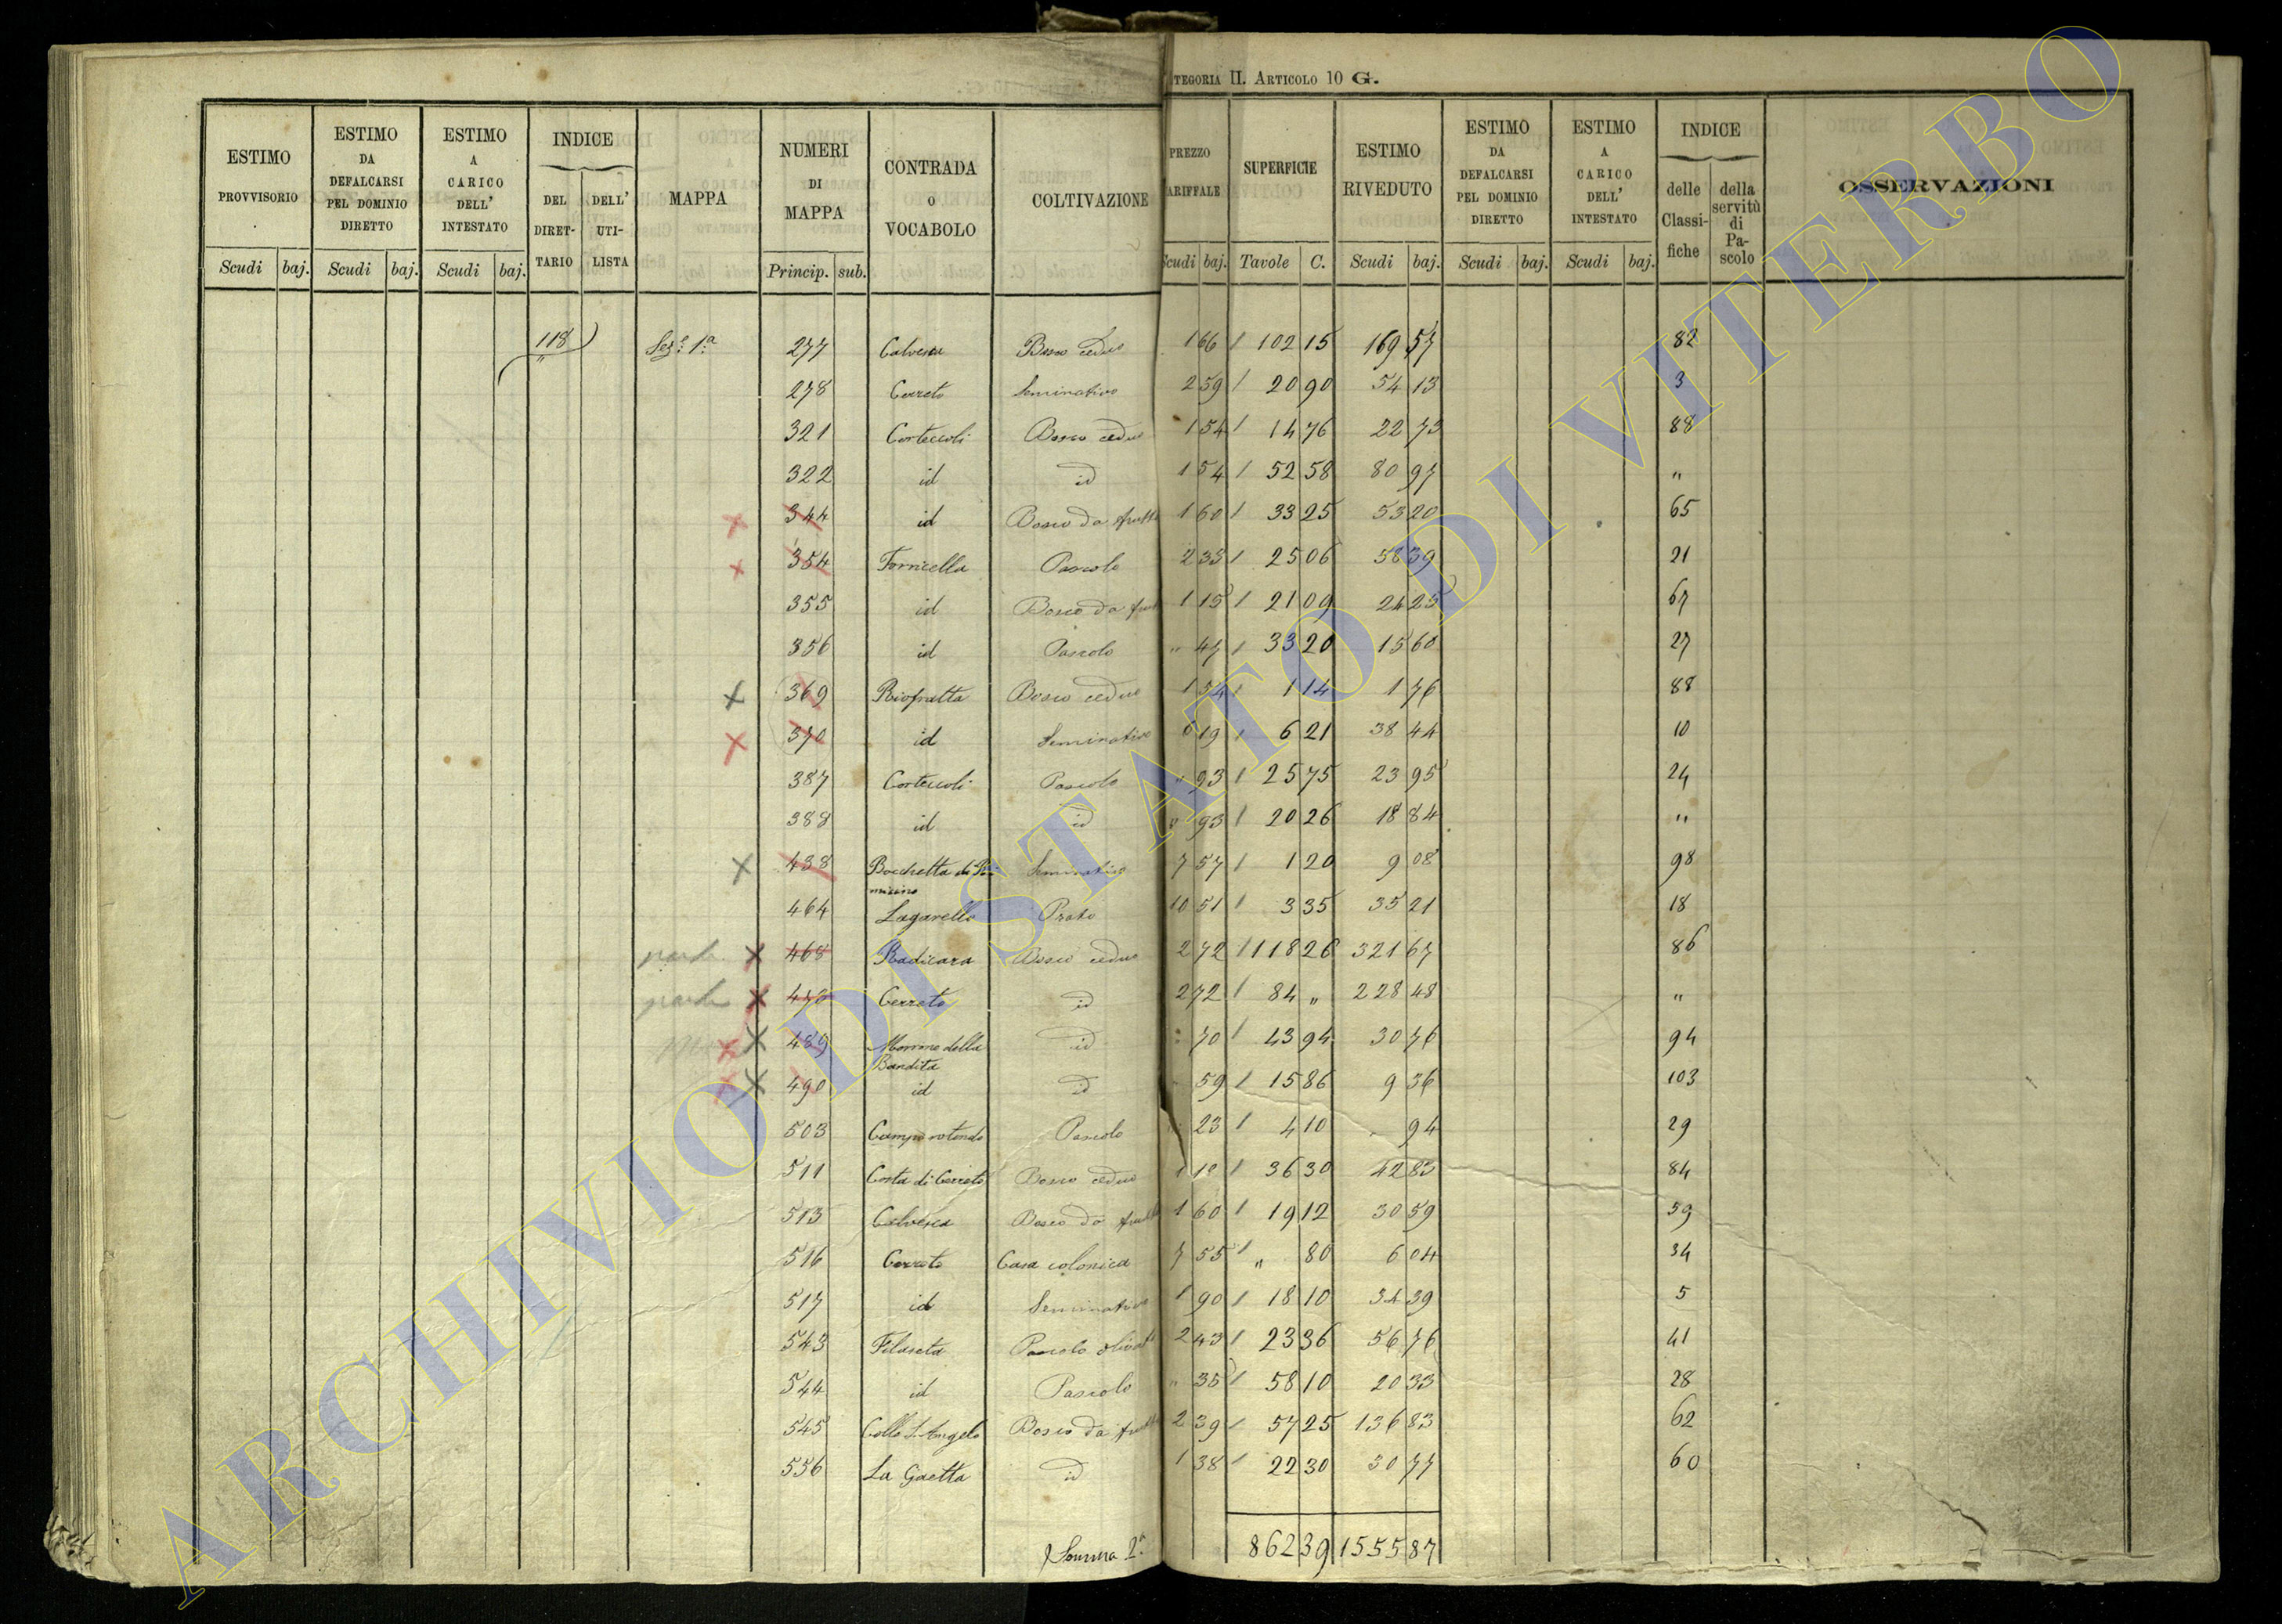 TEGORIA II. ARTICOLO 10 G.
ESTIMO PROVVISORIO
ESTIMO DA DEFALCARSI PEL DOMINIO DIRETTO
ESTIMO A CARICO DELL' INTESTATO
INDICE
DEL DIRET-TARIO
DELL' UTI-LISTA
MAPPA
NUMERI DI MAPPA
CONTRADA o VOCABOLO
COLTIVAZIONE
PREZZO ARIFFALE
SUPERFICIE
ESTIMO RIVEDUTO
ESTIMO DA DEFALCARSI PEL DOMINIO DIRETTO
ESTIMO A CARICO DELL' INTESTATO
INDICE
delle Classi-fiche
della servitù di Pa-scolo
OSSERVAZIONI
Scudi baj. Scudi baj. Scudi baj. Princip. sub. Scudi baj. Tavole C. Scudi baj. Scudi baj. Scudi baj.
118 Sez.e 1.a 277 Calvesca Bosco ceduo 1 66 102 15 169 57 82
278 Cerreto Seminativo 2 59 20 90 54 13 3
321 Corteccoli Bosco ceduo 1 54 14 76 22 73 88
322 id id 1 54 52 58 80 97 "
344 id Bosco da frutto 1 60 33 25 53 20 65
354 Fornicella Pascolo 2 33 25 06 58 39 21
355 id Bosco da frut 1 15 21 09 24 25 67
356 id Pascolo " 47 33 20 15 60 27
369 Riofratta Bosco ceduo 1 54 1 14 1 76 88
370 id Seminativo 6 19 6 21 38 44 10
387 Corteccoli Pascolo " 93 25 75 23 95 24
388 id id " 93 20 26 18 84 "
438 Bocchetta di Seminativo 7 57 1 20 9 08 98
464 Lagarello Prato 10 51 3 35 35 21 18
parte 468 Radicara Bosco ceduo 2 72 118 26 321 67 86
parte 470 Cerreto id 2 72 84 " 228 48 "
489 Morrone della Bandita id 70 43 94 30 76 94
490 id id 59 15 86 9 36 103
503 Campo rotondo Pascolo 23 4 10 94 29
511 Costa di Cerreto Bosco ceduo 1 18 36 30 42 83 84
513 Calvesca Bosco da frutto 1 60 19 12 30 59 59
516 Cerreto Casa colonica 7 55 " 80 6 04 34
517 id Seminativo 1 90 18 10 34 39 5
543 Filareta Pascolo olivato 2 43 23 36 56 76 41
544 id Pascolo " 35 58 10 20 33 28
545 Colle S. Angelo Bosco da frutto 2 39 57 25 136 83 62
556 La Gaetta id 1 38 22 30 30 77 60
Somma 2.a 862 39 1555 87
ARCHIVIO DI STATO DI VITERBO